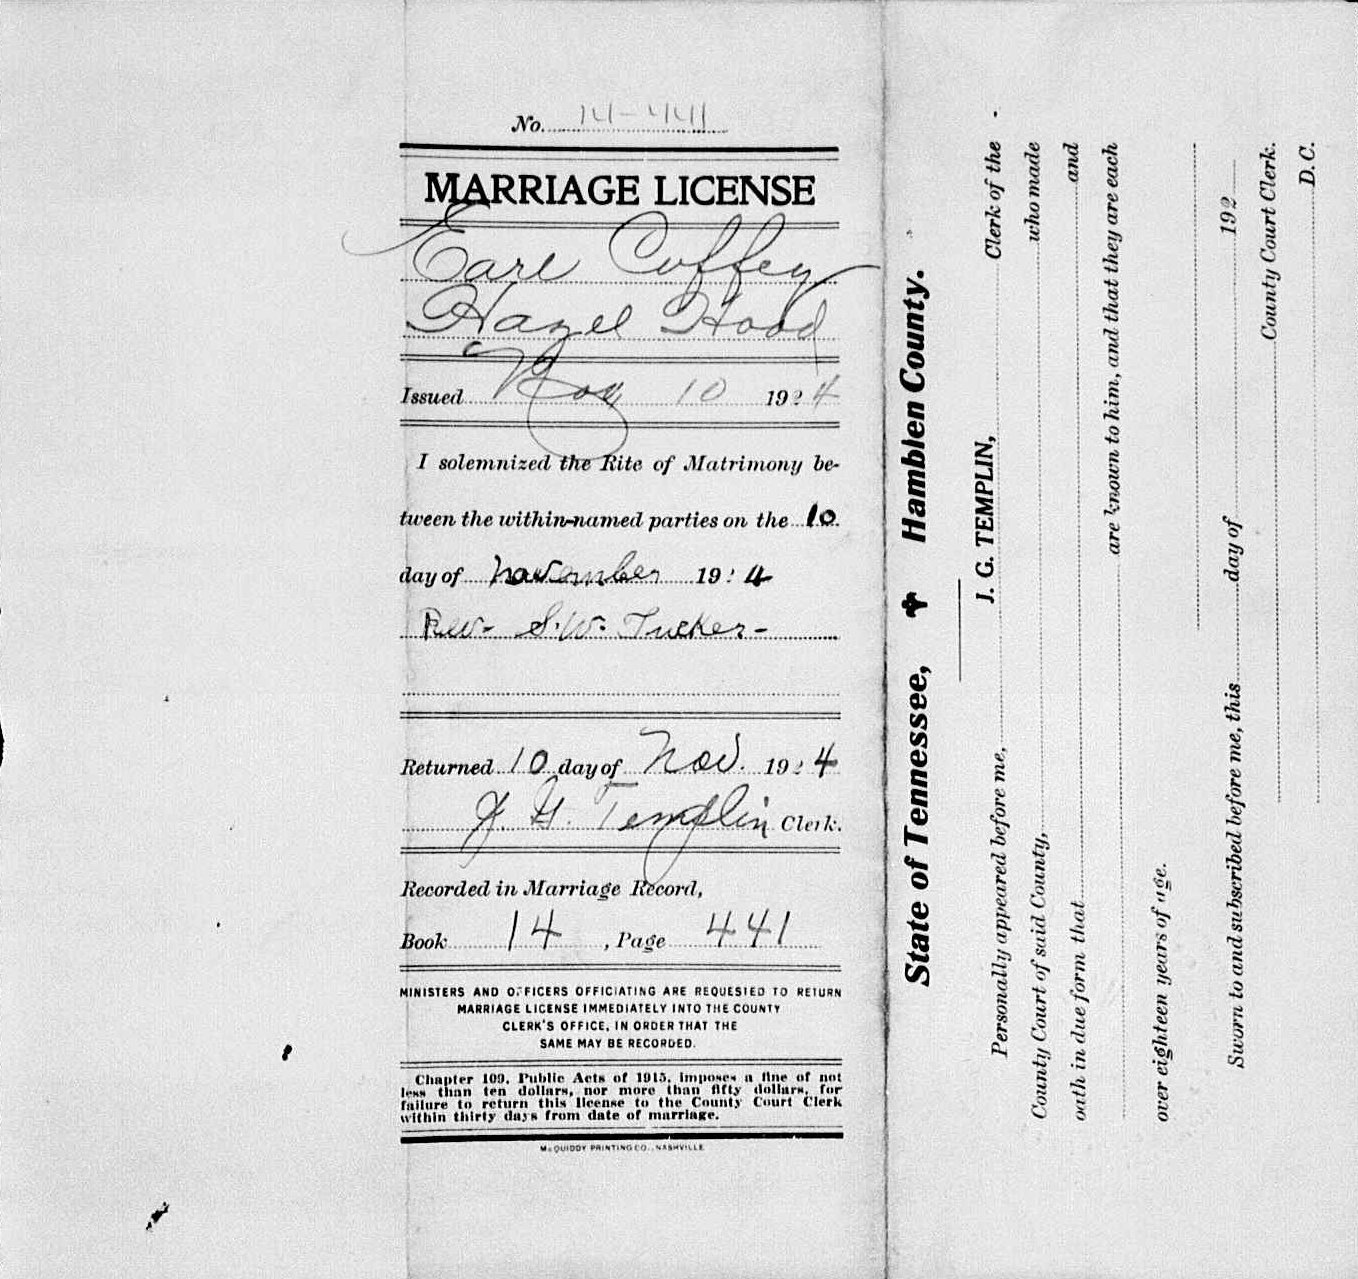 No. 14-441
MARRIAGE LICENSE
Earl Coffey
Hazel Hood
Issued Nov 10 1924
I solemnized the Rite of Matrimony be-
tween the within-named parties on the 10
day of november 19 24
Rev- S.W. Tucker-
Returned 10 day of Nov. 192 4
J. G. Templin Clerk.
Recorded in Marriage Record,
Book 14, Page 441
MINISTERS AND OFFICERS OFFICIATING ARE REQUESTED TO RETURN
MARRIAGE LICENSE IMMEDIATELY INTO THE COUNTY
CLERK'S OFFICE, IN ORDER THAT THE
SAME MAY BE RECORDED.
Chapter 109, Public Acts of 1915, imposes a fine of not
less than ten dollars, nor more than fifty dollars, for
failure to return this license to the County Court Clerk
within thirty days from date of marriage.
McQUIDDY PRINTING CO., NASHVILLE
State of Tennessee, Hamblen County.
Personally appeared before me, J. G. TEMPLIN, Clerk of the
County Court of said County, who made
oath in due form that and
are known to him, and that they are each
over eighteen years of age.
Sworn to and subscribed before me, this day of 192
County Court Clerk.
D. C.